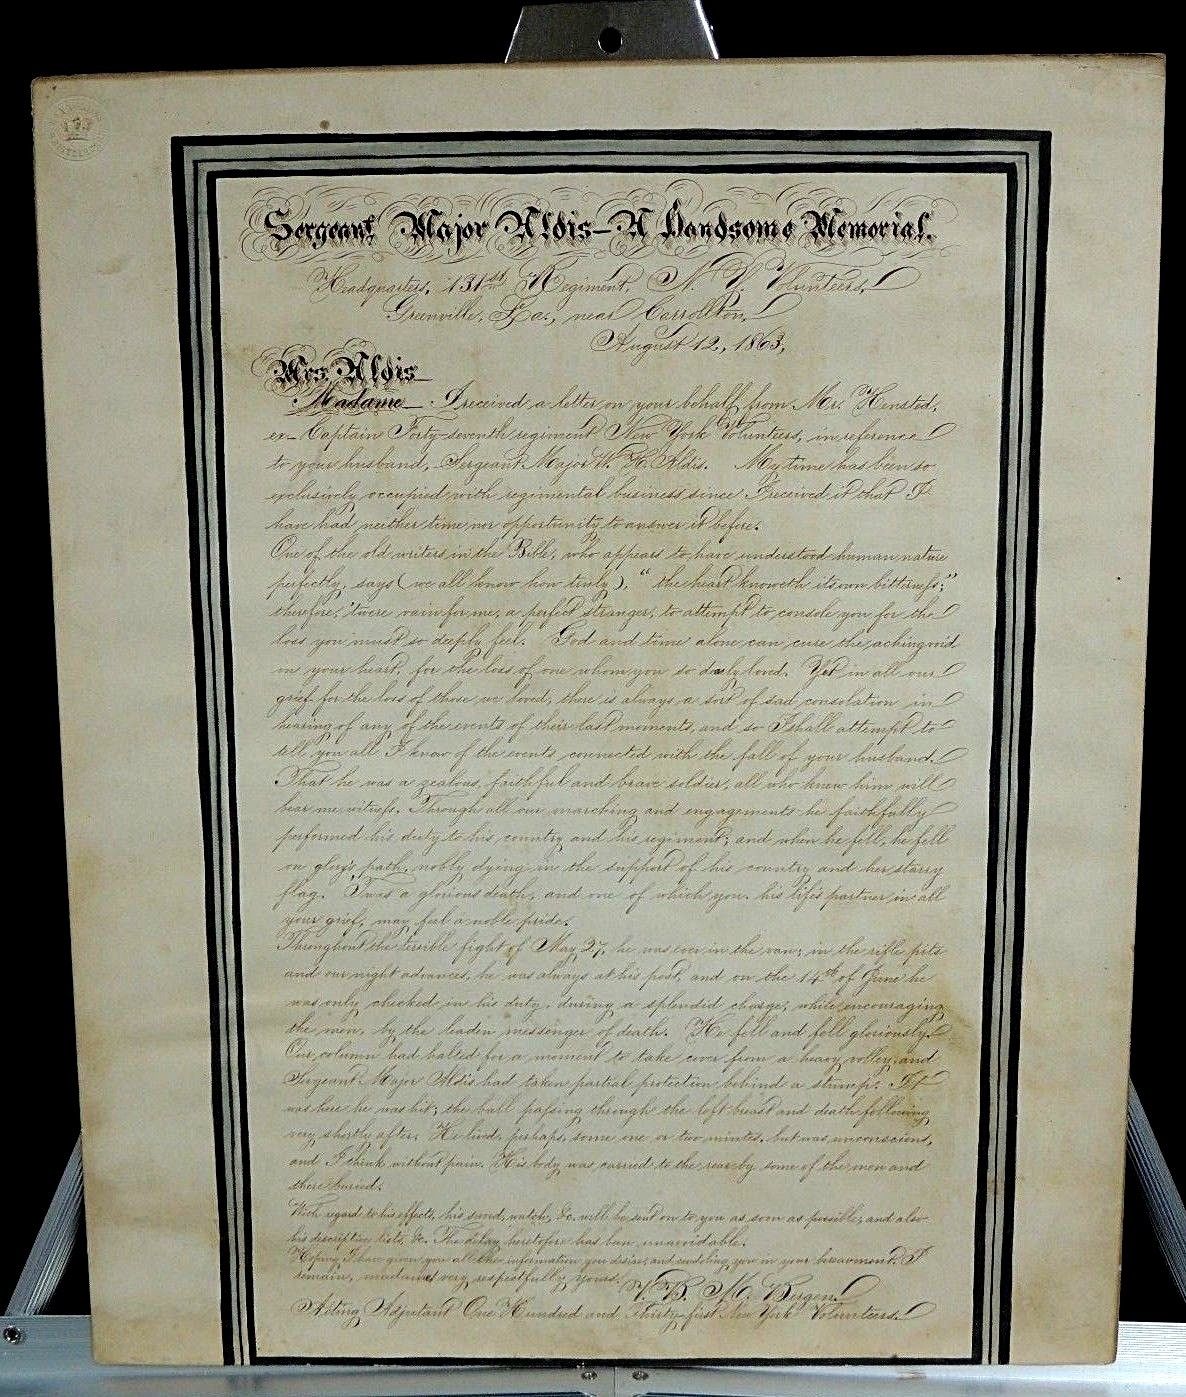 Sergeant Major Aldis — A Handsome Memorial.
Headquarters, 131st Regiment, N. Y. Volunteers,
Greenville, La., near Carrollton,
August 12, 1863,
Mrs. Aldis —
Madame — I received a letter on your behalf from Mr. Hensted,
ex-Captain Forty-seventh regiment New York Volunteers, in reference
to your husband, Sergeant Major W. H. Aldis. My time has been so
exclusively occupied with regimental business since I received it that I
have had neither time nor opportunity to answer it before.
One of the old writers in the Bible, who appears to have understood human nature
perfectly, says (we all know how truly), "the heart knoweth its own bitterness;"
therefore, 'twere vain for me, a perfect stranger, to attempt to console you for the
loss you must so deeply feel. God and time alone can cure the aching void
in your heart, for the loss of one whom you so dearly loved. Yet in all our
grief for the loss of those we loved, there is always a sort of sad consolation in
hearing of any of the events of their last moments, and so I shall attempt to
tell you all I know of the events connected with the fall of your husband.
That he was a zealous, faithful and brave soldier, all who knew him will
bear me witness. Through all our marching and engagements he faithfully
performed his duty to his country and his regiment; and when he fell, he fell
on glory's path, nobly dying in the support of his country and her starry
flag. 'Twas a glorious death, and one of which you, his life's partner, in all
your grief, may feel a noble pride.
Throughout the terrible fight of May 27, he was ever in the van; in the rifle pits
and our night advances, he was always at his post, and on the 14th of June he
was only checked in his duty, during a splendid charge, while encouraging
the men, by the leaden messenger of death. He fell and fell gloriously.
Our column had halted for a moment to take cover from a heavy volley, and
Sergeant Major Aldis had taken partial protection behind a stump. It
was here he was hit; the ball passing through the left breast and death following
very shortly after. He lived, perhaps, some one or two minutes, but was unconscious,
and I think without pain. His body was carried to the rear by some of the men and
there buried.
With regard to his effects, his sword, watch, &c. will be sent on to you as soon as possible, and also
his descriptive lists, &c. The delay heretofore has been unavoidable.
Hoping I have given you all the information you desire, and condoling you in your bereavement, I
remain, madame, very respectfully yours,
V. B. M. Bergen,
Acting Adjutant One Hundred and Thirty-first New York Volunteers.